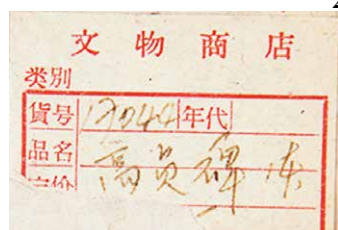 文物商店
类别
貨号 17044 年代
品名 高贞碑 冻
定价